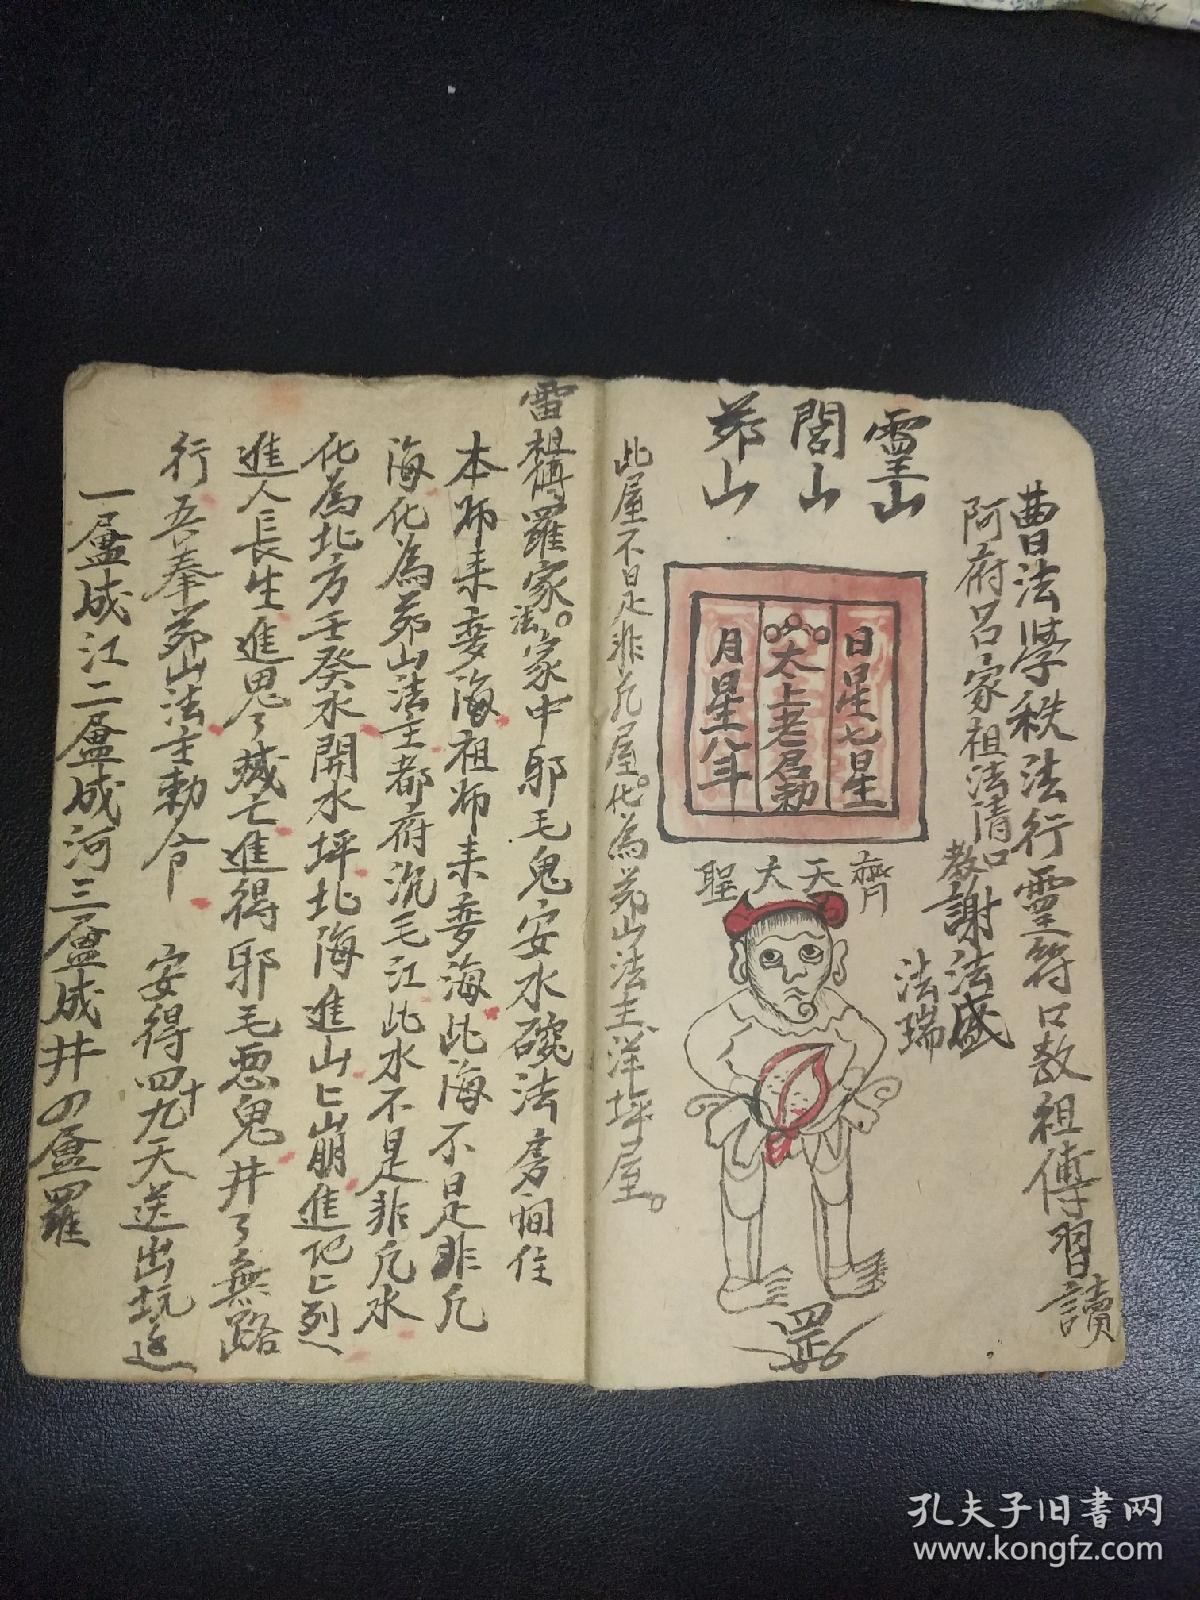 曹法学秩法行靈符口教祖傅習讀
阿府呂家祖法清口教謝法盛
法瑞
靈山
閭山
茆山
日星七星
太上老君勅
月星八斗
齊天大聖
罡
此屋不是非凡屋。化為茆山法主洋坪屋。
雷祖傅羅家。法家中邪毛鬼安水碗法房间住
本师来变海祖师来变海此海不是非凡
海化為茆山法主都府沉毛江此水不是非凡水
化為北方壬癸水開水坪北海進山匕崩進地匕列
進人長生進鬼了滅亡進得邪毛惡鬼井了無路
行吾奉茆山法主勅令 安得四十九天送出坑边
一盧成江二盧成河三盧成井の盧羅
孔夫子旧書网
www.kongfz.com